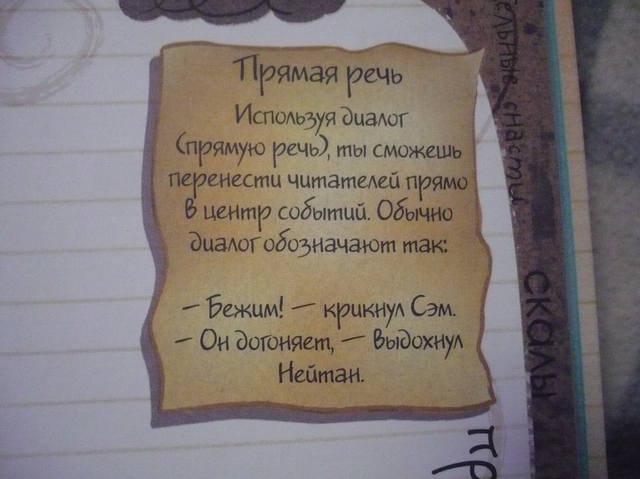 Прямая речь
Используя диалог
(прямую речь), ты сможешь
перенести читателей прямо
в центр событий. Обычно
диалог обозначают так:
– Бежим! – крикнул Сэм.
– Он догоняет, – выдохнул
Нейтан.
снасти
скалы